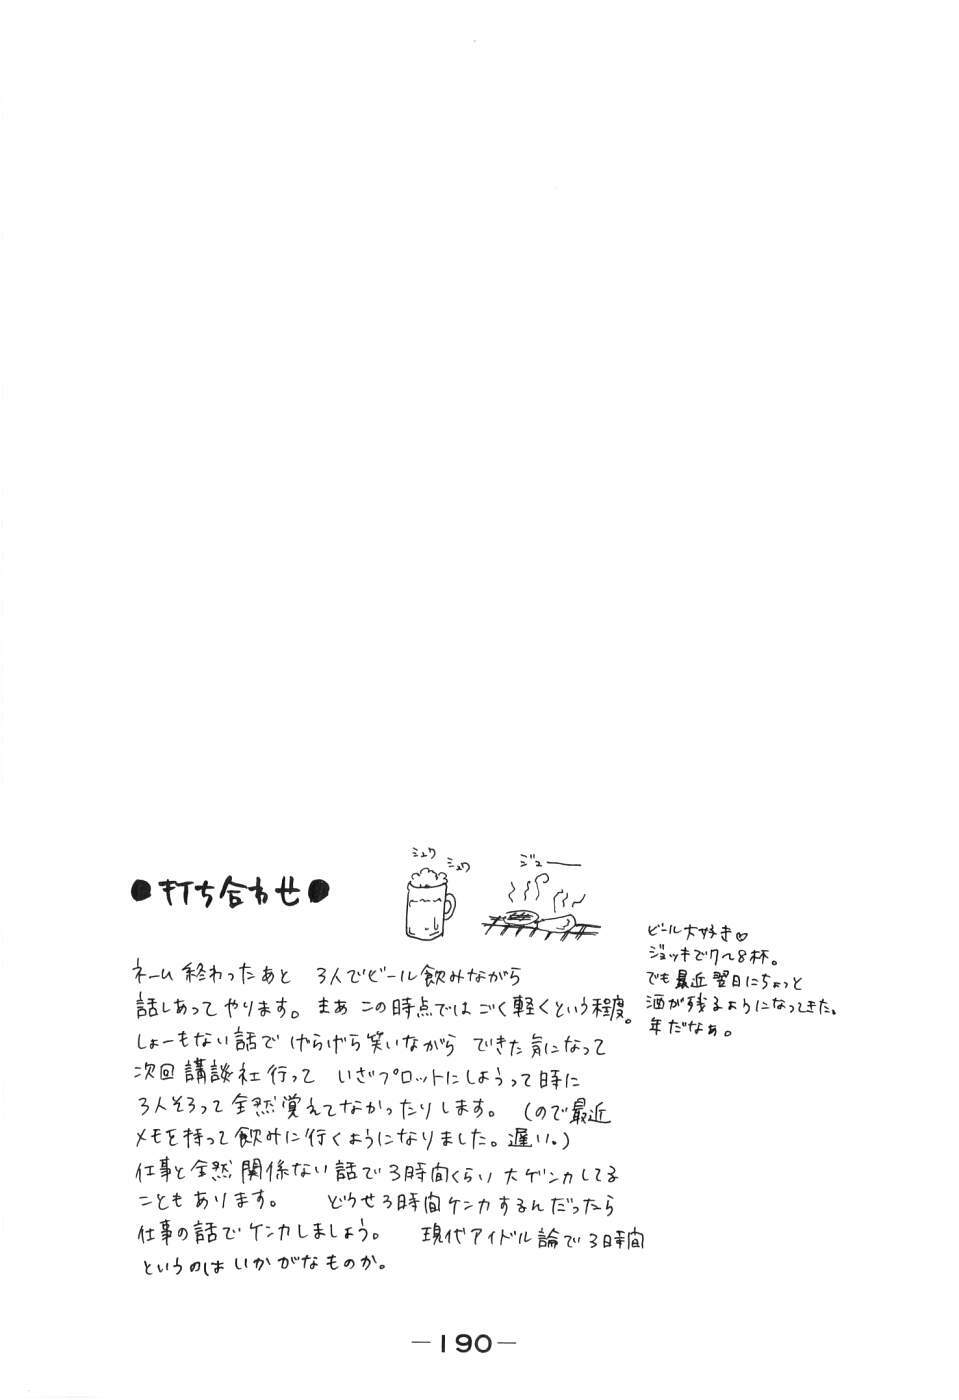 ●打ち合わせ●
シュワ
シュワ
ジュー
ネーム終わったあと 3人でビール飲みながら
話しあってやります。まあ この時点では ごく軽くという程度。
しょーもない話で げらげら笑いながら できた気になって
次回 講談社行って いざプロットにしようって時に
3人そろって全然覚えてなかったりします。(ので最近
メモを持って飲みに行くようになりました。遅い。)
仕事と全然関係ない話で3時間くらい大ゲンカしてる
こともあります。 どうせ3時間ケンカするんだったら
仕事の話でケンカしましょう。 現代アイドル論で3時間
というのはいかがなものか。
ビール大好き♡
ジョッキで7〜8杯。
でも最近翌日にちょっと
酒が残るようになってきた。
年だなぁ。
—190—